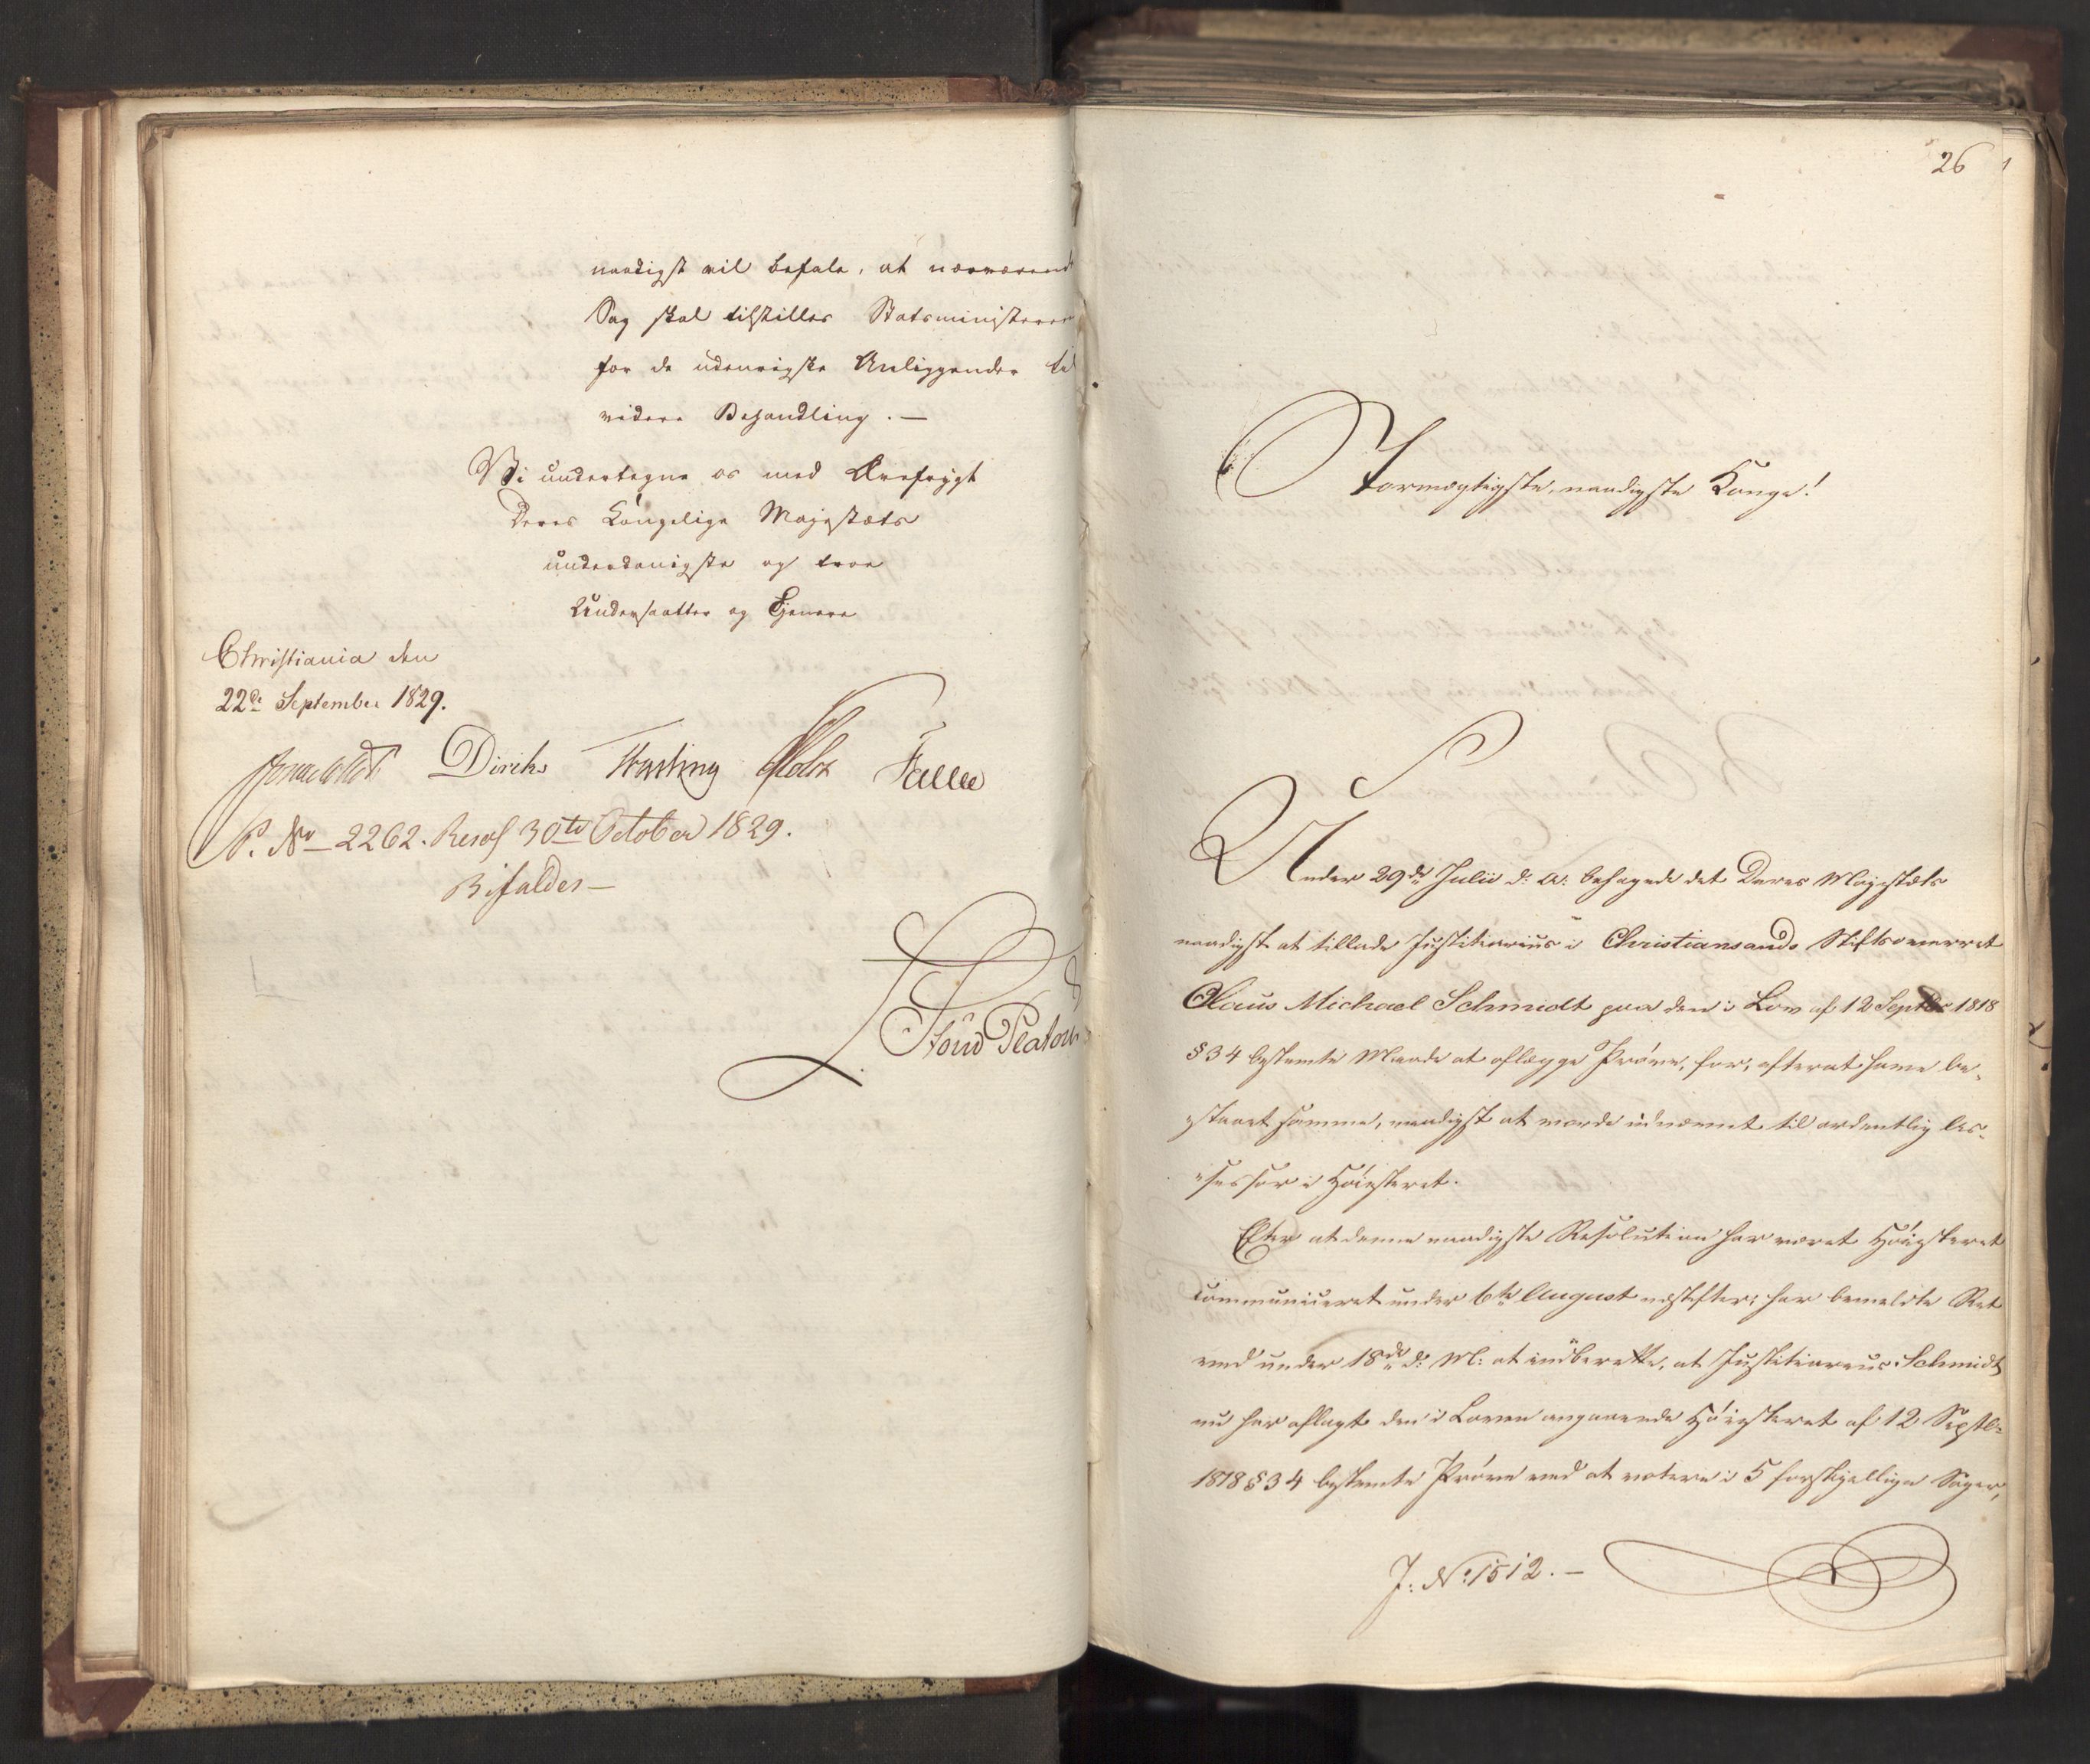 naadigst vil befale, at nærværend
Sag skal tilstilles Statsministeren
for de udenrigske Anliggender til
videre Behandling. —
Vi undertegne os med Ærefrygt
Deres Kongelige Majestæts
underdanigste og troe
Undersaatter og Tjenere
Christiania den
22de September 1829.
Diriks Fasting Falbe
P. No 2262. Resol 30te October 1829.
Bifaldes —
Platou
26
Stormægtigste, naadigste Konge!
Under 29de Julii d: A: behagede det Deres Majestæts
naadigst at tillade Justitiarius i Christiansands Stiftsoverret
Claus Michael Schmidt paa den i Lov af 12 Septbr 1818
§34 bestemte Maade at aflægge Prøve, for, efterat have be-
staaet samme, naadigst at vorde udnævnt til ordentlig As-
sessor i Høiesteret.
Efter at denne naadigste Resolution har været Høiesteret
communiceret under 6te August næstefter, har bemeldte Ret
ved under 18de d: M: at indberette, at Justitiarius Schmidt
nu har aflagt den i Loven angaaende Høiesteret af 12 Septbr
1818 §34 bestemte Prøve ved at votere i 5 forskjellige Sager,
J: No: 1512. —